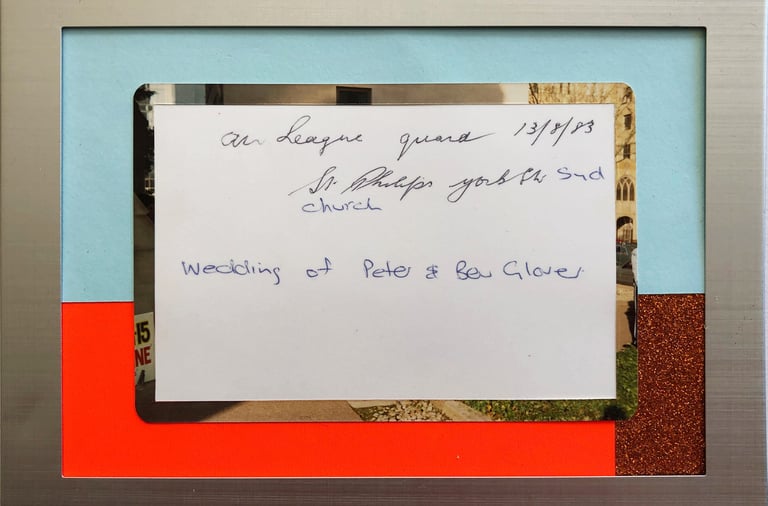 air League guard 13/8/83
St. Philips york St. Syd
church
Wedding of Peter & Bev Glover
-15
NE